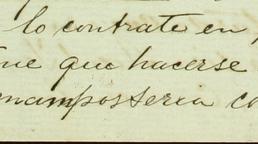 lo contrate en
ne que hacerse
namposteria co